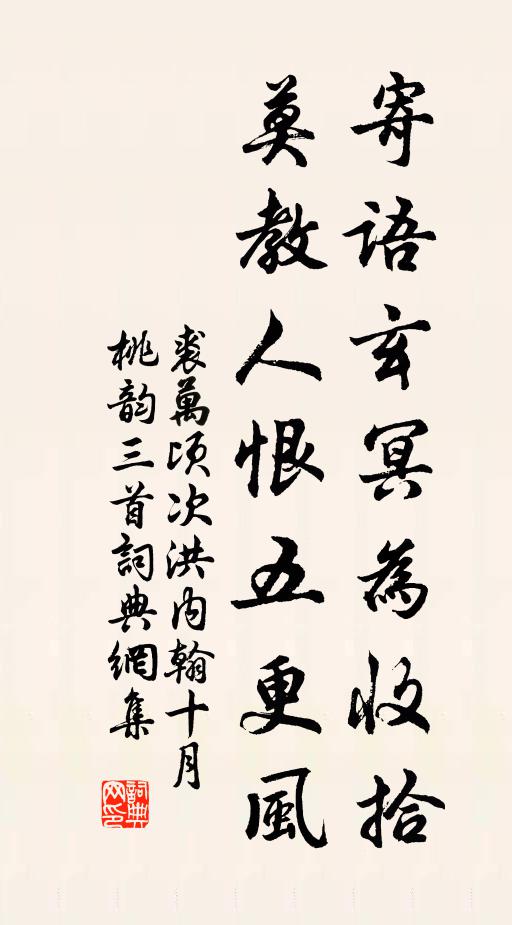 寄語玄冥為收拾
莫教人恨五更風
裘萬頃次洪內翰十月
桃韵三首詞典網集
詞典网印